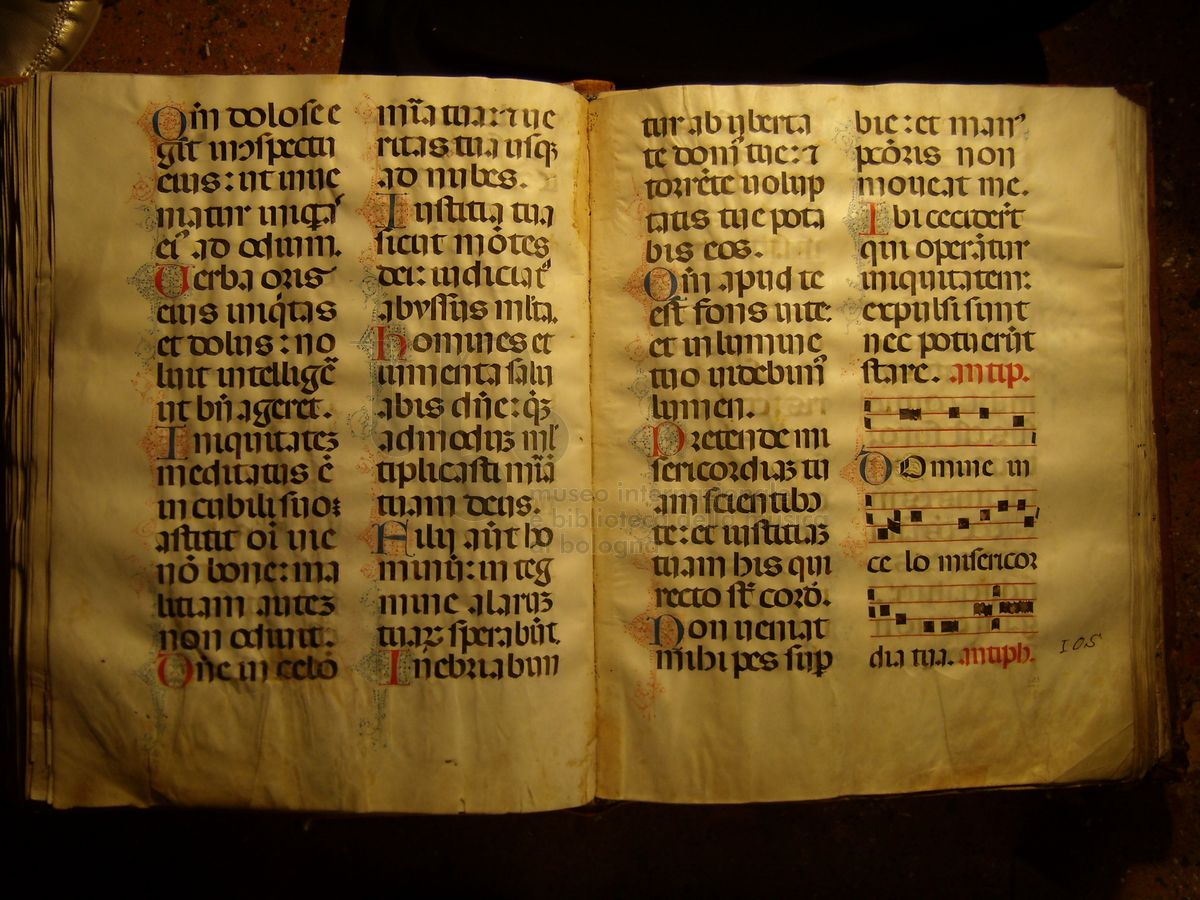 Qm̄ dolose e
git in ɔspectu
eius: ut inue
niatur iniqͥta
eiꝰ ad odium.
Uerba oris
eius iniqͥtas
et dolus: no
luit intelligē
ut bn̄ ageret.
Iniquitatez
meditatus ē
in cubili suo:
astitit oī uie
nō bone: ma
litiam autez
non odiuit.
Dn̄e in celo
mīa tua: ⁊ ue
ritas tua usqꝫ
ad nubes.
Iustitia tua
sicut mōtes
dei: iudicia tꝰ
abyssus ml̄ta.
homines et
iumenta salu
abis dn̄e: qꝫ
admoduz ml̓
tiplicasti mīā
tuam deus.
Filij aūt ho
minū: in teg
mine alaruz
tuaꝝ sperabūt.
Inebriabun
tur ab ubertа
te domꝰ tue: ⁊
torrēte uolup
tatis tue pota
bis eos.
Qm̄ apud te
est fons uite:
et in lumine
tuo uidebimꝰ
lumen.
Pretende mi
sericordiaz tu
am scientibꝰ
te: et iustitiaz
tuam his qui
recto st̄ cord̄.
Non ueniat
mihi pes sup̄
bie: et manꝰ
pctōris non
moueat me.
Ibi ceciderūt
qui operātur
iniquitatem:
expulsi sunt
nec potuerūt
stare. antip.
Domine in
ce lo misericor
dia tua. antiph.
105
museo inte
e biblioteca della musica
di bologna